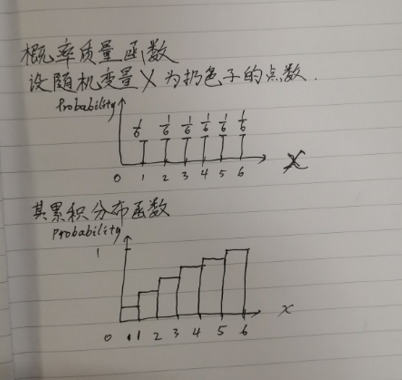 概率质量函数
设随机变量X为扔色子的点数.
Probability
1/6 1/6 1/6 1/6 1/6 1/6
0 1 2 3 4 5 6 X
其累积分布函数
Probability
1
0 1 2 3 4 5 6 x